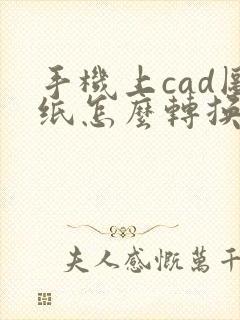 手機上cad圖
纸怎麼轉換
夫人感慨萬千